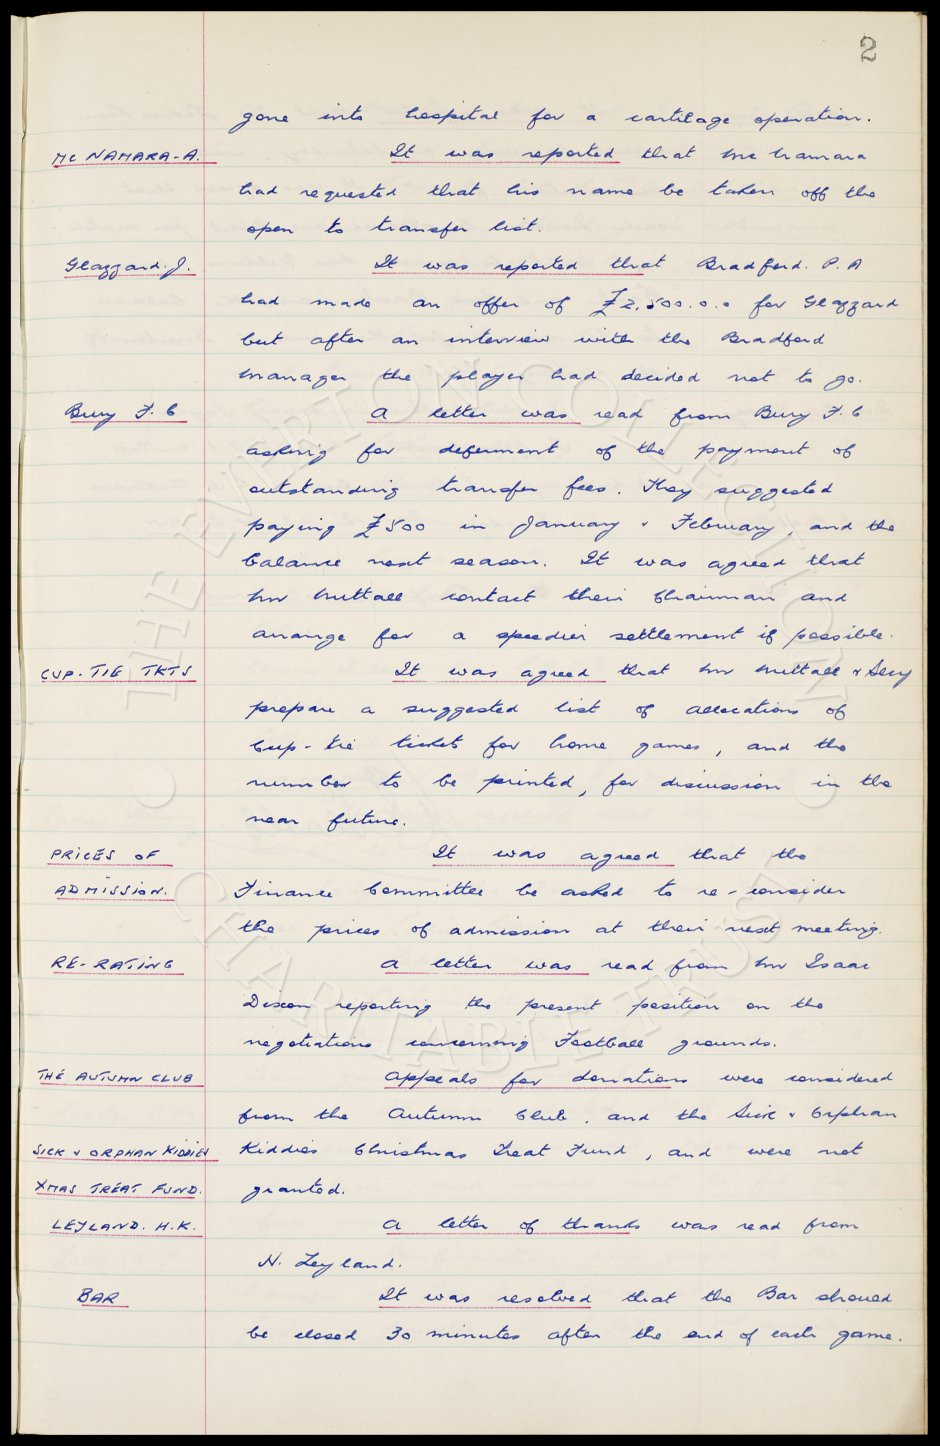 2
gone into hospital for a cartilage operation.
Mc NAMARA-A. It was reported that Mc Namara
had requested that his name be taken off the
open to transfer list.
Glazzard. J. It was reported that Bradford. P. A
had made an offer of £2,500.0.0 for Glazzard
but after an interview with the Bradford
manager the player had decided not to go.
Bury F. C A letter was read from Bury F. C
asking for deferment of the payment of
outstanding transfer fees. They suggested
paying £500 in January & February, and the
balance next season. It was agreed that
Mr Nuttall contact their Chairman and
arrange for a speedier settlement if possible.
CUP. TIE TKTS It was agreed that Mr Nuttall & Secy
prepare a suggested list of allocations of
Cup-tie tickets for home games, and the
number to be printed, for discussion in the
near future.
PRICES OF It was agreed that the
ADMISSION. Finance Committee be asked to re-consider
the prices of admission at their next meeting.
RE-RATING A letter was read from Mr Isaac
Dixon reporting the present position on the
negotiations concerning Football grounds.
THE AUTUMN CLUB Appeals for donations were considered
from the Autumn Club, and the Sick & Orphan
SICK & ORPHAN KIDDIES Kiddies Christmas Treat Fund, and were not
XMAS TREAT FUND. granted.
LEYLAND. H.K. A letter of thanks was read from
H. Leyland.
BAR It was resolved that the Bar should
be closed 30 minutes after the end of each game.
THE EVERTON COLLECTION
CHARITABLE TRUST